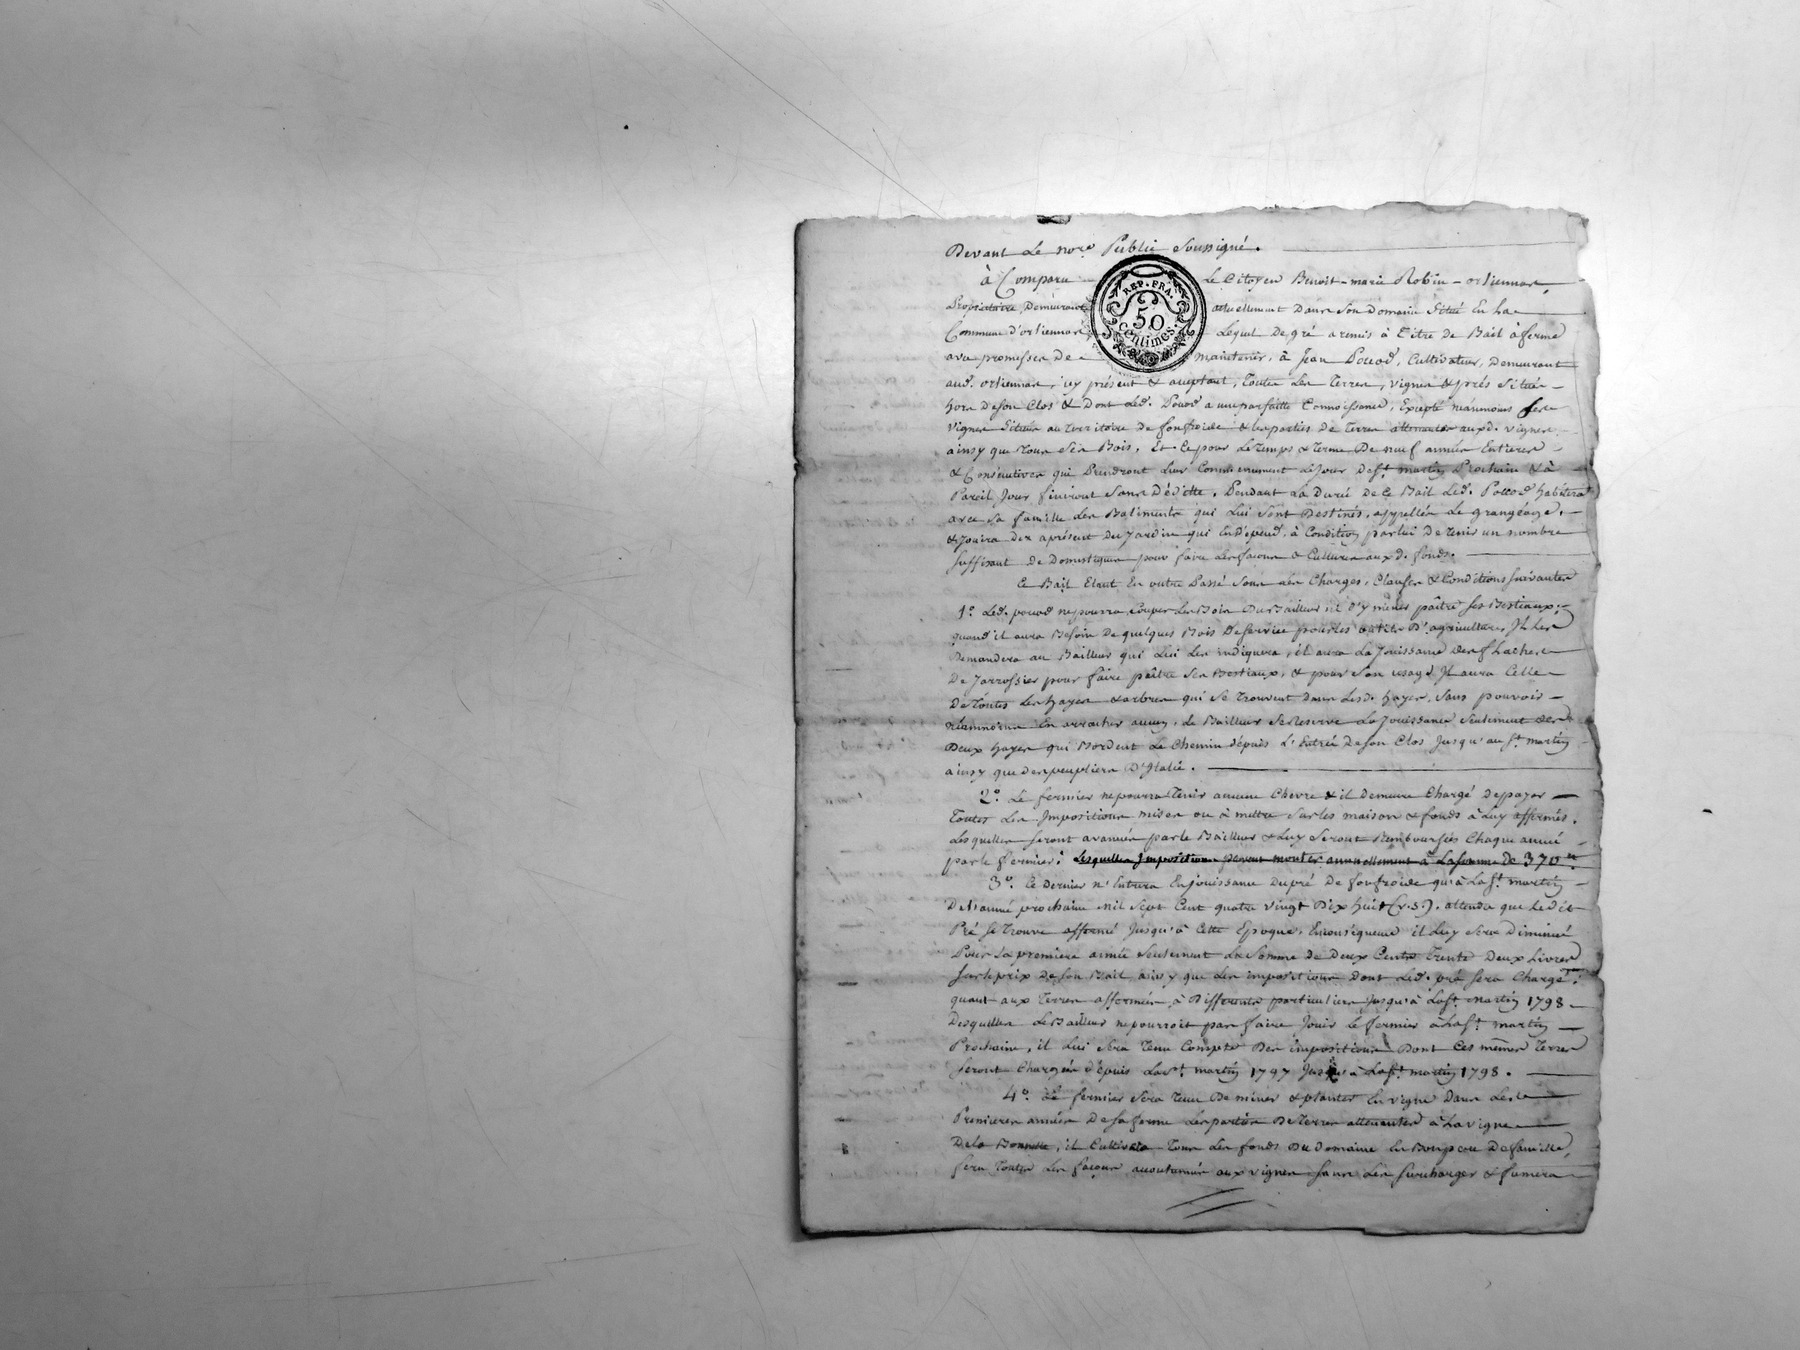 Devant Le No.re Public Soussigné.
à Comparu Le Citoyen Benoit-marie Robin-orliennas,
Propriétaire, Demeurant actuellement Dans Son Domaine Situé En La
Commune d'orliennas Lequel De gré a remis à Titre de Bail à ferme
avec promesses De maintenir, à Jean Pocod, Cultivateur, Demeurant
aud. orliennas, icy présent & acceptant, Toutes Les Terres, vignes & prés Situés
hors De Son Clos & Dont Led. Pocod a une parfaitte Connoissance, Excepté néanmoins Les
vignes Situées au Territoire De fonfroide & les parties de Terres attenantes auxd. vignes,
ainsy que Tous Ses Bois, Et Ce pour Le Temps & Terme De neuf années Entieres
& Consécutives qui Prendront Leur Commencement Le Jour De St. martin Prochain & à
Pareil Jour finiront Sans Déditte. Pendant La Durée de Ce Bail Led. Pocod habitera
avec Sa famille Les Batiments qui Lui Sont Destinés, appellés Le grangeage,
& Jouira Dez aprésent Du Jardin qui En Dépend, à Condition par lui De Tenir un nombre
Suffisant De Domestiques pour faire Les façons & Cultures auxd. fonds.
Ce Bail Etant En outre Passé Sous Les Charges, Clauses & Conditions Suivantes
1.° Led. pocod ne pourra Couper Les Bois Du Bailleur ni d'y mener paître Ses Bestiaux;
quand il aura Besoin De quelques Bois De Service pour Les outils D'agriculture, Il Les
Demandera au Bailleur qui Lui Les indiquera, il aura La Jouissance des
De Jarrossier pour faire paître Ses Bestiaux, & pour Son usage Il aura Celle
De Toutes Les hayes & arbres qui Se Trouvent Dans Lesd. hayes, Sans pouvoir
néanmoins En arracher aucun, Le Bailleur Se Reserve La Jouissance Seulement des
Deux hayes qui Bordent Le Chemin dépuis L'Entrée De Son Clos Jusqu'au St. martin
ainsy que des peupliers D'Italie.
2.° Le fermier ne pourra Tenir aucune Chevre & il Demeure Chargé De payer
Toutes Les Impositions mises ou à mettre Sur les maison & fonds à Luy affermés,
Lesquelles Seront avancées par le Bailleur & Luy Seront Remboursées Chaque année
par le fermier; Lesquelles Impositions peuvent monter annuellement à La Somme De 370
3.° Ce Dernier n'Entrera En Jouissance Du pré De fonfroide qu'à La St. martin
De L'année prochaine mil Sept Cent quatre vingt Dix huit (v.s.). attendu que Ledit
Pré Se Trouve affermé Jusqu'à Cette Epoque, En Conséquence il Luy Sera Diminué
Pour La premiere année Seulement La Somme De Deux Cents Trente Deux Livres
Sur le prix De Son Bail, ainsy que Les impositions Dont Led. pré Sera Chargé;
quant aux Terres affermées à Differents particuliers Jusqu'à La St. Martin 1798
Desquelles Le Bailleur ne pourroit pas faire Jouir Le fermier à La St. martin
Prochaine, il Lui Sera Tenu Compte Des impositions Dont Ces mêmes Terres
Seront Chargées dépuis La St. martin 1797 Jusqu'à La St. martin 1798.
4.° Le fermier Sera Tenu De miner & planter En vigne Dans Les
Premieres années De Sa ferme Les parties De Terres attenantes à La vigne
De La Bonnette, il Cultivera Tous Les fonds Du Domaine En Bon pere De famille,
fera Toutes Les façons accoutumées aux vignes Sans Les Surcharger & fumera
REP. FRA.
50
Centimes.